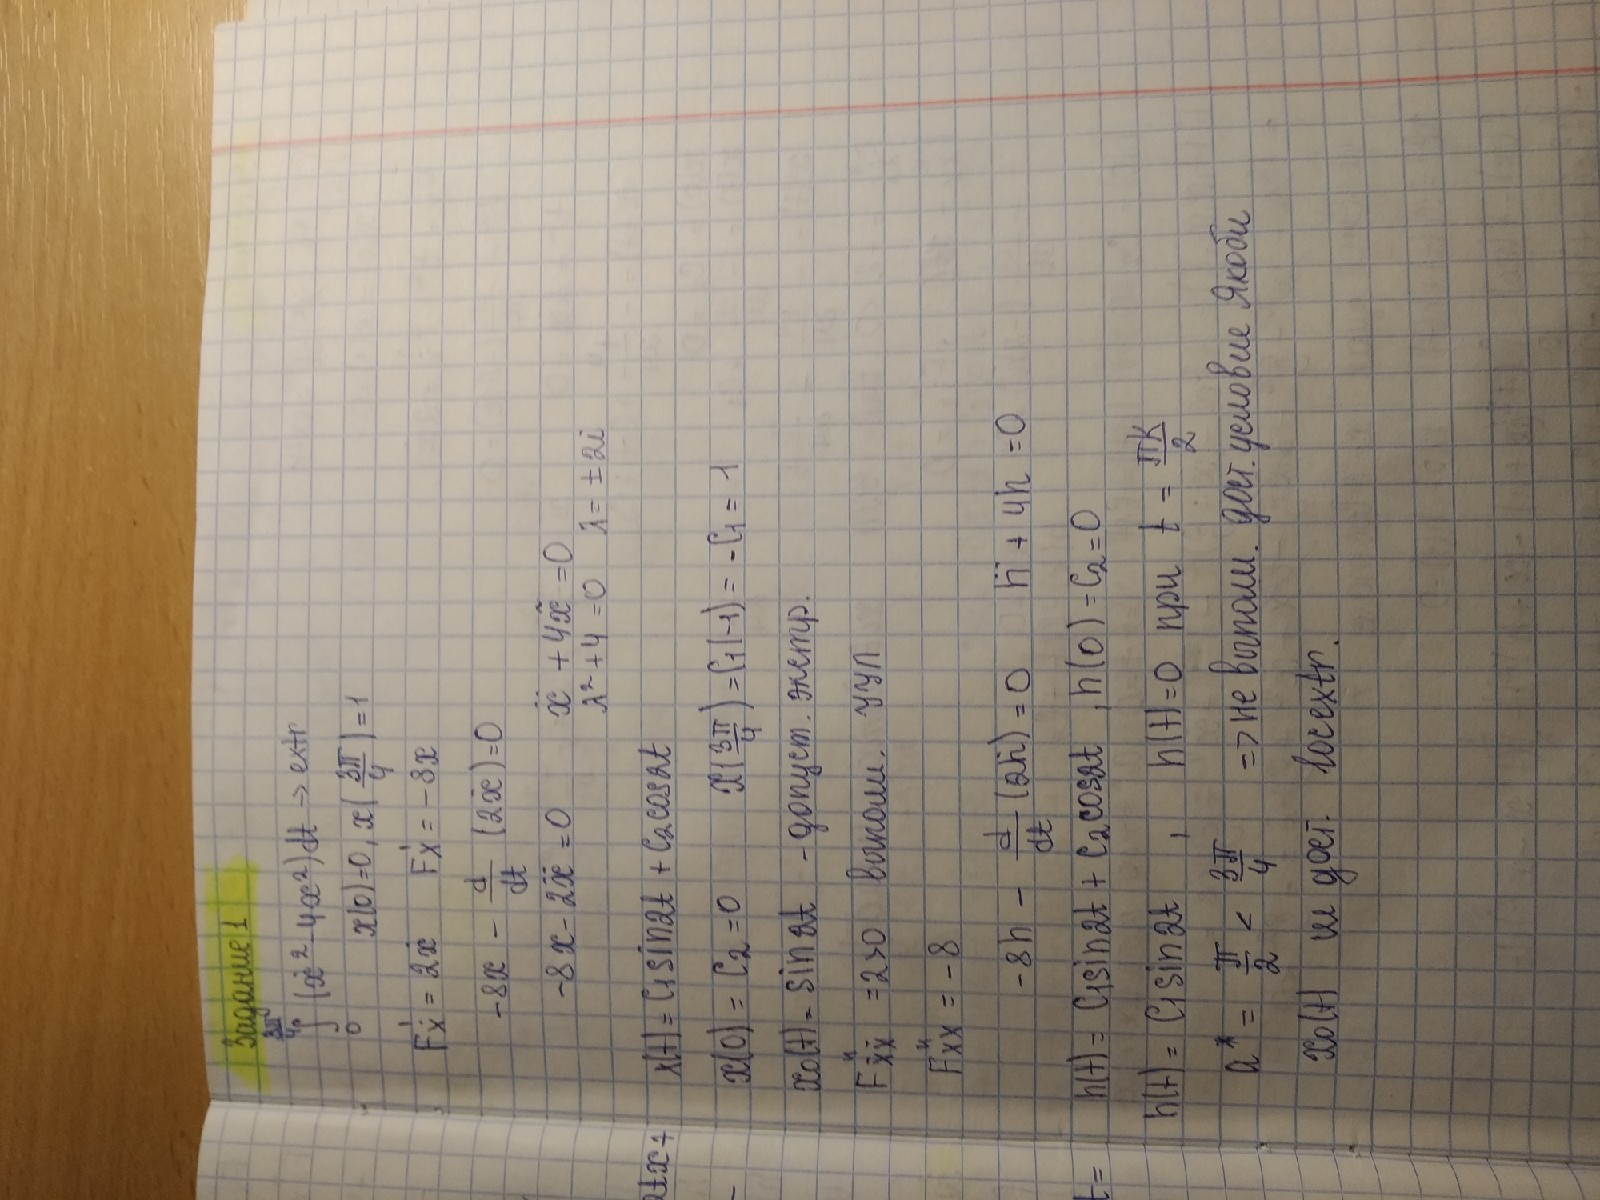 Задание 1
3π/4
∫ (ẋ² - 4x²)dt → extr
0
x(0)=0, x(3π/4)=1
F'ẋ = 2ẋ F'x = -8x
-8x - d/dt (2ẋ)=0
-8x - 2ẍ = 0 ẍ + 4x = 0
λ² + 4 = 0 λ = ±2i
2tx +
x(t) = C₁sin2t + C₂cos2t
x(0) = C₂ = 0 x(3π/4) = C₁(-1) = -C₁ = 1
x₀(t) = sin2t - допуст. экстр.
F''ẋẋ = 2>0 выполн. УУЛ
F''xx = -8
-8h - d/dt (2ḣ) = 0 ḧ + 4h = 0
t =
h(t) = C₁sin2t + C₂cos2t , h(0) = C₂ = 0
h(t) = C₁sin2t , h(t)=0 при t = πK/2
a* = π/2 < 3π/4 => не выполн. дост. условие Якоби
x₀(t) не дост. locextr.